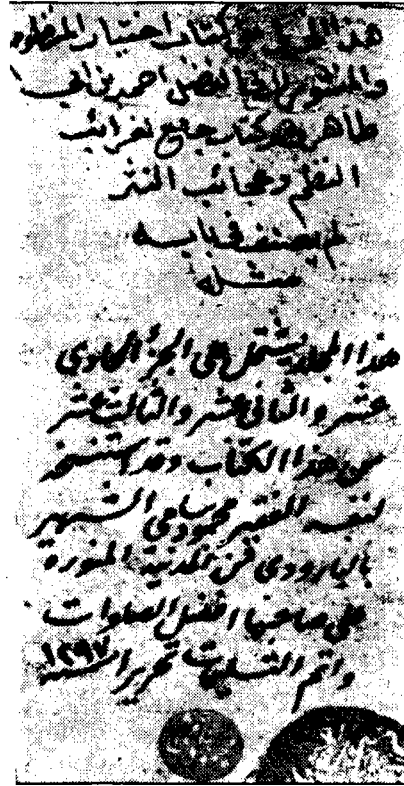 هذا المجلد من كتاب اختيار المنظوم
والمنثور لابي الفضل احمد بن ابي
طاهر وهو كتاب جامع لغرائب
النظم وعجائب النثر
لم يصنف في بابه
مثله
هذا المجلد يشتمل على الجزء الحادي
عشر والثاني عشر والثالث عشر
من هذا الكتاب وقد استنسخه
لنفسه الفقير محمود سامي الشهير
بالبارودي من المدينة المنورة
على صاحبها افضل الصلوات
واتم التسليمات تحريرا سنة ١٢٩٧